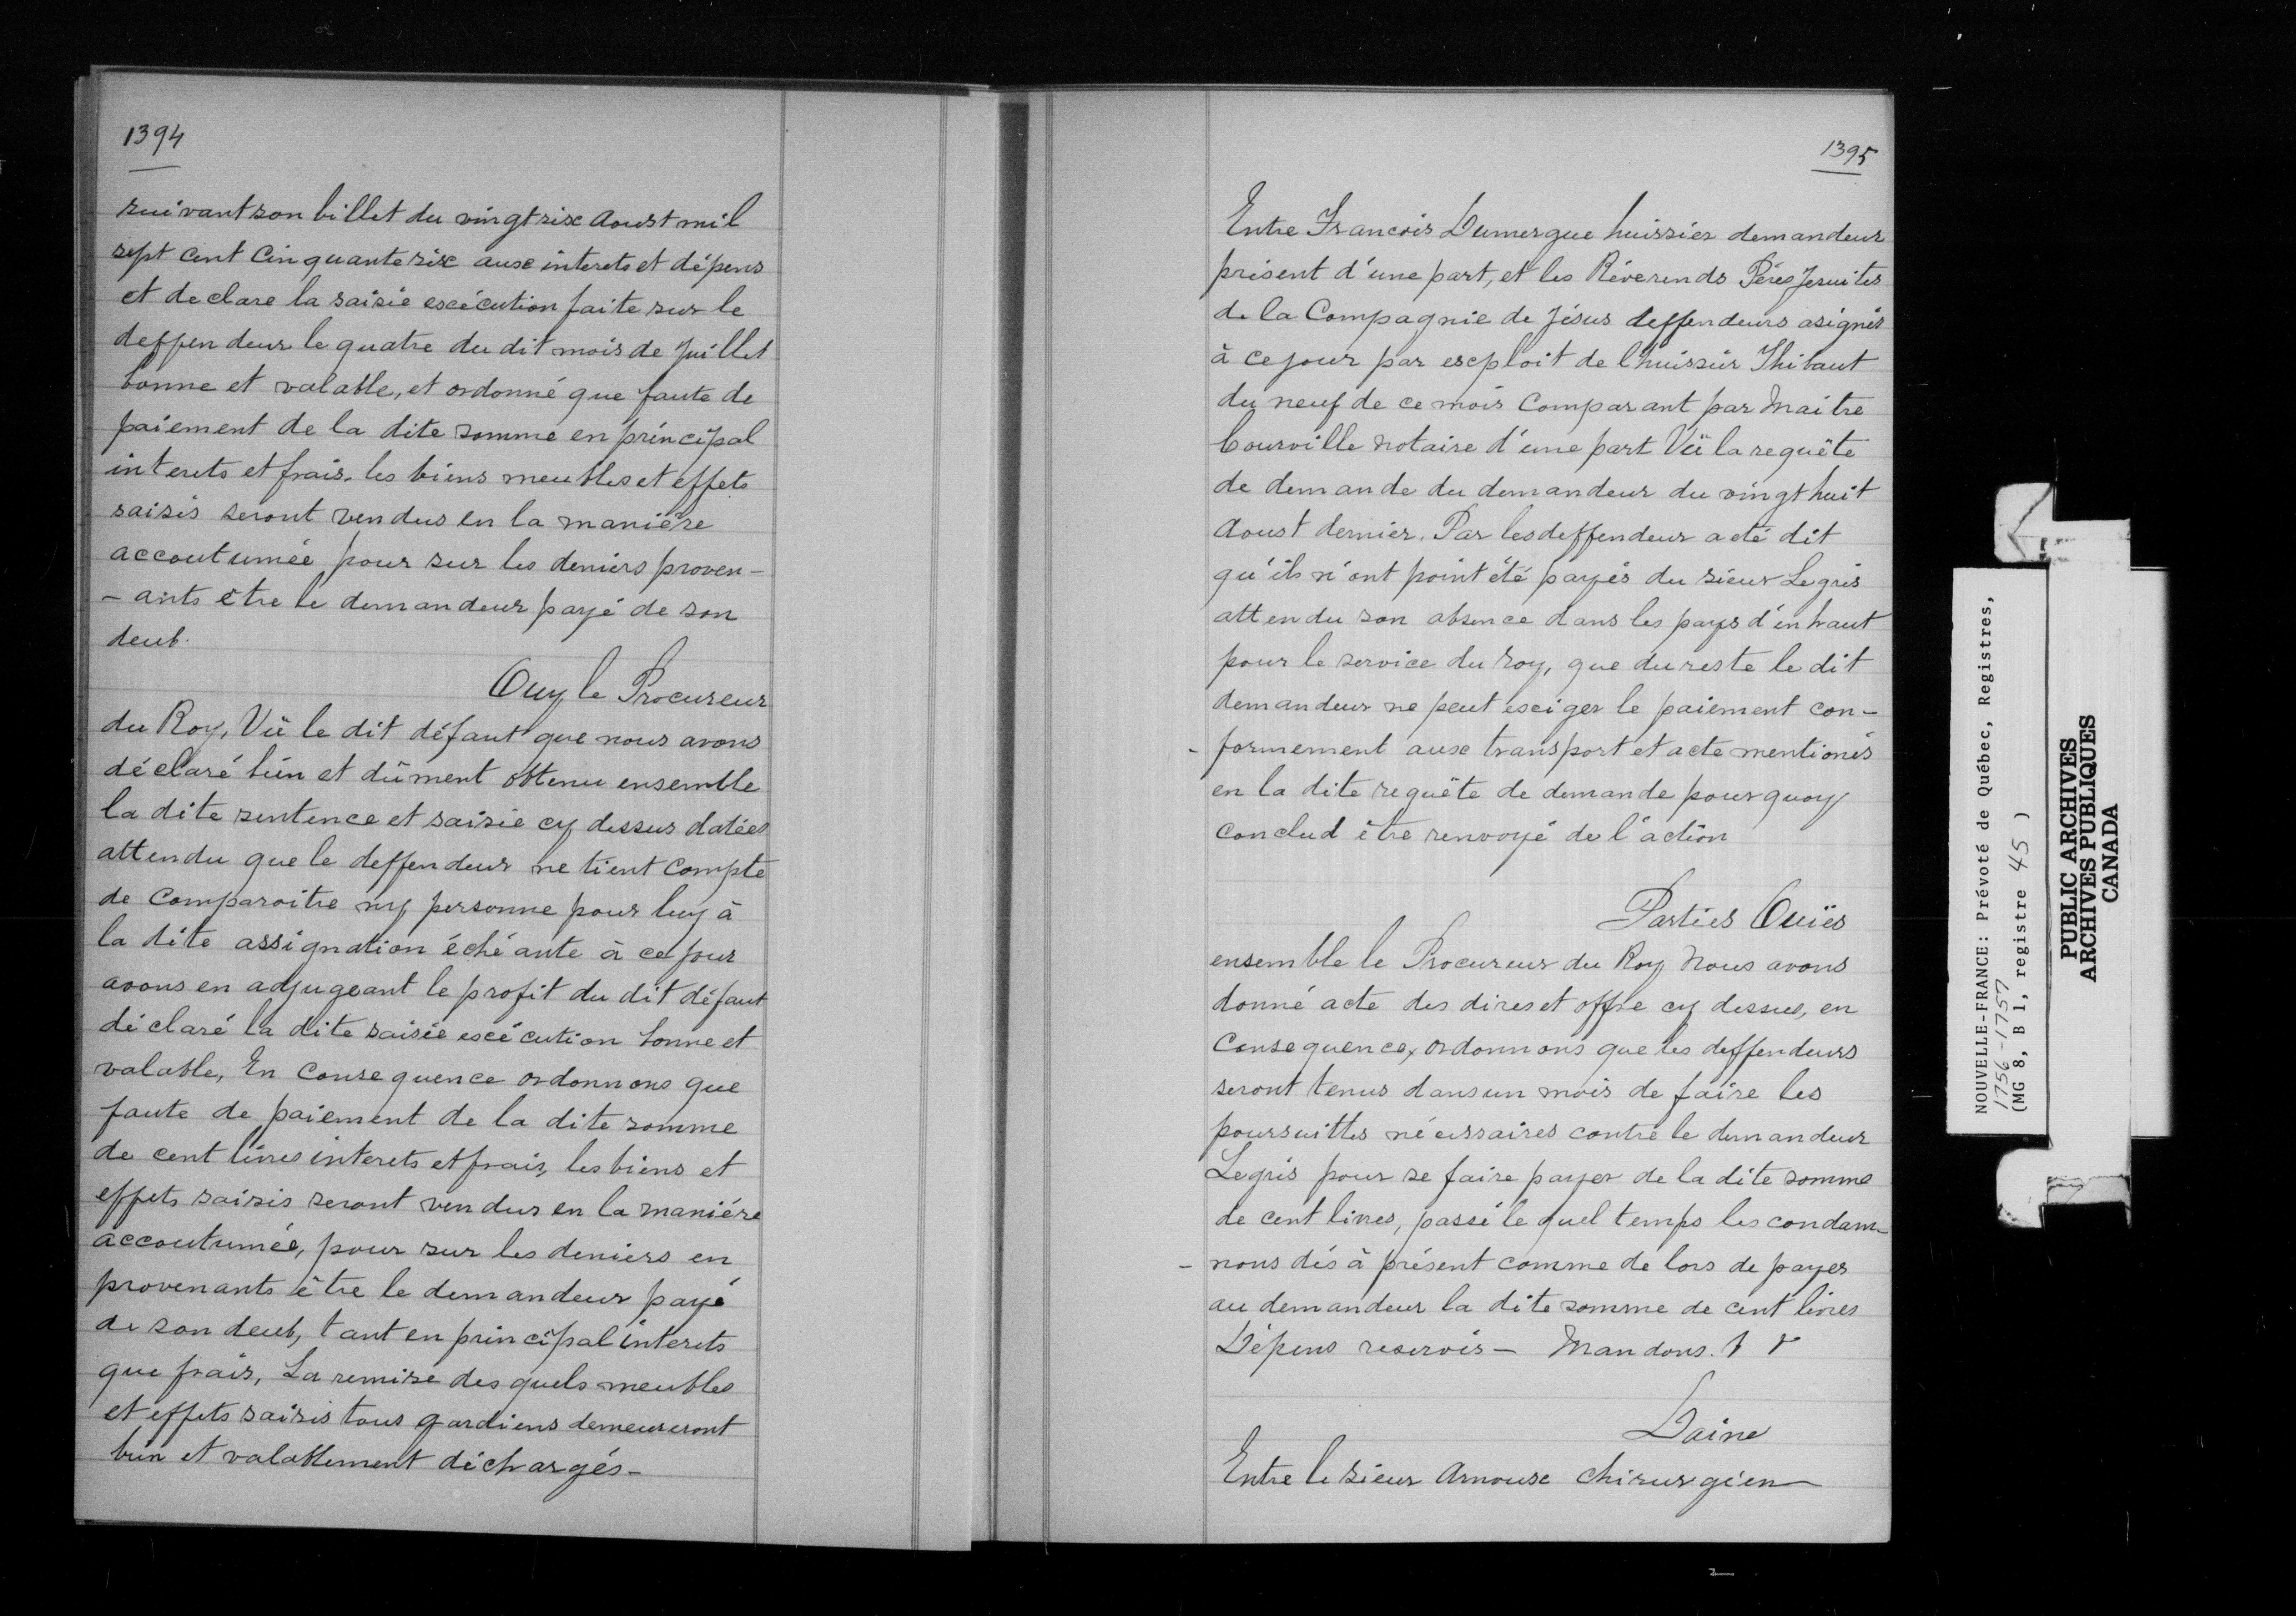 1394
suivant son billet du vingt six Aoust mil
sept cent Cinquante six aux interets et dépens
et declare la saisie exécution faite sur le
deffendeur le quatre du dit mois de Juillet
bonne et valable, et ordonné que faute de
paiement de la dite somme en principal
interets et frais. les biens meubles et effets
saisis seront vendus en la maniére
accoutumée pour sur les deniers proven-
-ants etre le demandeur payé de son
deub.
Ouy le Procureur
du Roy, Vü le dit défaut que nous avons
déclaré bien et dûment obtenu ensemble
la dite sentence et saisie cy dessus datées
attendu que le deffendeur ne tient compte
de Comparoitre ny personne pour luy à
la dite assignation échéante à ce jour
avons en adjugeant le profit du dit défaut
déclaré la dite saisie exécution bonne et
valable, En Consequence ordonnons que
faute de paiement de la dite somme
de cent livres interets et frais, les biens et
effets saisis seront vendus en la maniére
accoutumée, pour sur les deniers en
provenants être le demandeur payé
de son deub, tant en principal interets
que frais, La remise des quels meubles
et effets saisis tous gardiens demeureront
bien et valablement déchargés-
1395
Entre Francois Dumergue huissier demandeur
présent d'une part, et les Réverends Péres Jesuites
de la Compagnie de Jésus deffendeurs asignés
à ce jour par exploit de l'huissier Thibaut
du neuf de ce mois Comparant par Maitre
Courville Notaire d'une part Vü la requête
de demande du demandeur du vingt huit
Aoust dernier. Par les deffendeur a eté dit
qu'ils n'ont point été payés du sieur Legris
attendu son absence dans les pays d'en haut
pour le service du roy, que du reste le dit
demandeur ne peut exiger le paiement con-
-formement aux transport et acte mentionés
en la dite requête de demande pourquoy
conclud être renvoyé de l'action
Parties Ouïes
ensemble le Procureur du Roy Nous avons
donné acte des dires et offre cy dessus, en
Consequence, ordonnons que les deffendeurs
seront tenus dans un mois de faire les
poursuittes nécessaires contre le demandeur
Legris pour se faire payer de la dite somme
de cent livres, passé le quel temps les condam-
-nons dés à présent comme de lors de payer
au demandeur la dite somme de cent livres
Dépens reservés - Mandons.
Daine
Entre le sieur Arnoux Chirurgien
NOUVELLE-FRANCE: Prévoté de Québec, Registres,
1756-1757
(MG 8, B 1, registre 45 )
PUBLIC ARCHIVES
ARCHIVES PUBLIQUES
CANADA